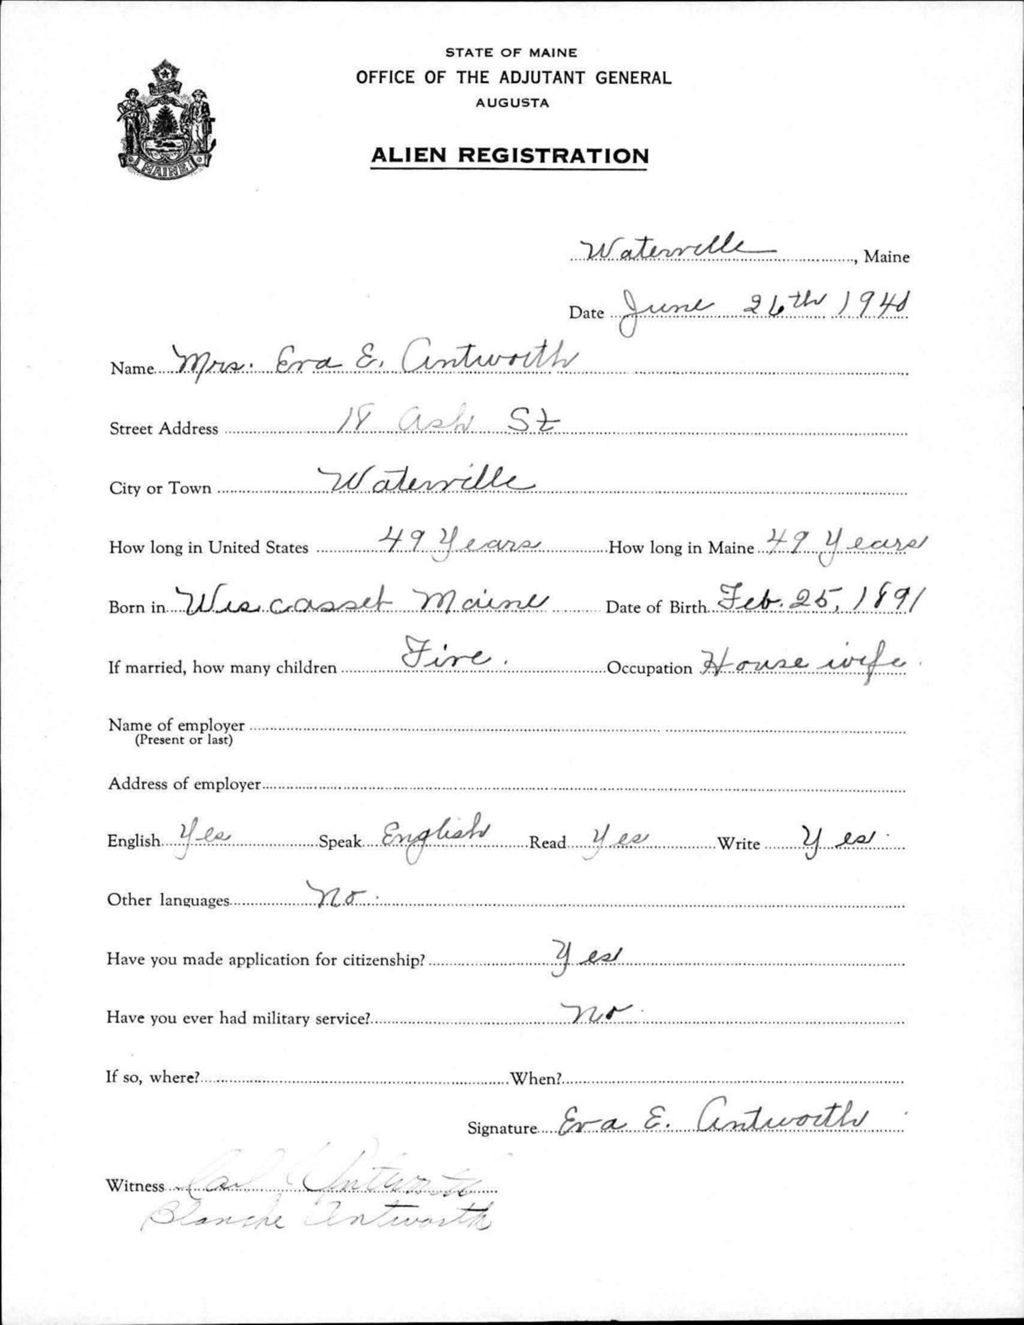 STATE OF MAINE
OFFICE OF THE ADJUTANT GENERAL
AUGUSTA
ALIEN REGISTRATION
MAINE
Waterville, Maine
Date June 26th 1940
Name Mrs. Eva E. Antworth
Street Address 18 Ash St
City or Town Waterville
How long in United States 49 Years How long in Maine 49 Years
Born in Wiscasset Maine Date of Birth Feb. 25, 1891
If married, how many children Five. Occupation House wife.
Name of employer
(Present or last)
Address of employer
English Yes Speak English Read Yes Write Yes.
Other languages No.
Have you made application for citizenship? Yes
Have you ever had military service? No.
If so, where? When?
Signature Eva E. Antworth
Witness Carl Antworth
Blanche Antworth